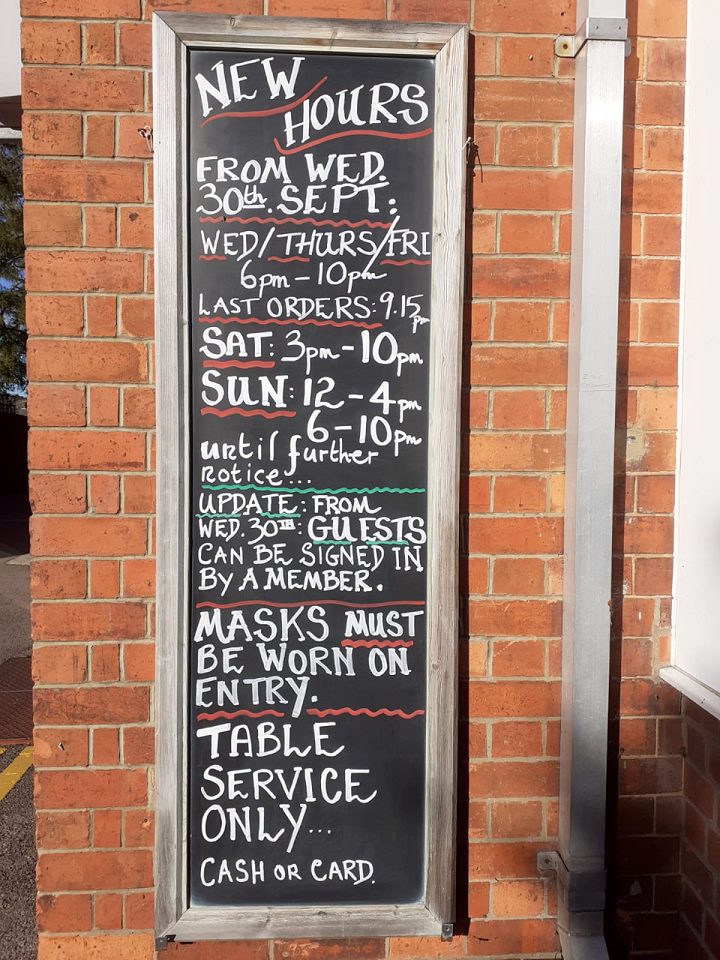 NEW
HOURS
FROM WED.
30th. SEPT:
WED/THURS/FRI
6pm - 10pm
LAST ORDERS: 9.15pm
SAT: 3pm - 10pm
SUN: 12 - 4pm
6 - 10pm
until further
notice...
UPDATE: FROM
WED. 30TH: GUESTS
CAN BE SIGNED IN
By A MEMBER.
MASKS MUST
BE WORN ON
ENTRY.
TABLE
SERVICE
ONLY...
CASH OR CARD.